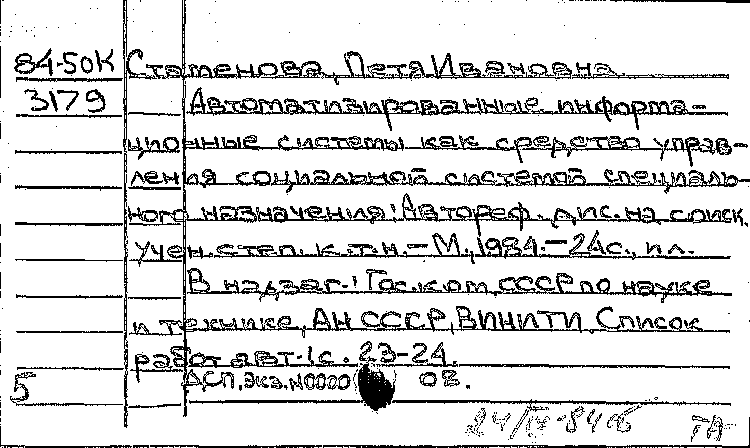 84-50К Стаменова, Петя Ивановна.
3179 Автоматизированные информа-
ционные системы как средство управ-
ления социальной системой специаль-
ного назначения: Автореф. дис. на соиск.
учен. степ. к.т.н. - М., 1984. - 24с., ил.
В надзаг.: Гос. ком. СССР по науке
и технике, АН СССР, ВИНИТИ. Список
работ авт.: с. 23-24.
5 ДСП, экз. N0000 02.
24/IV-84 ТА